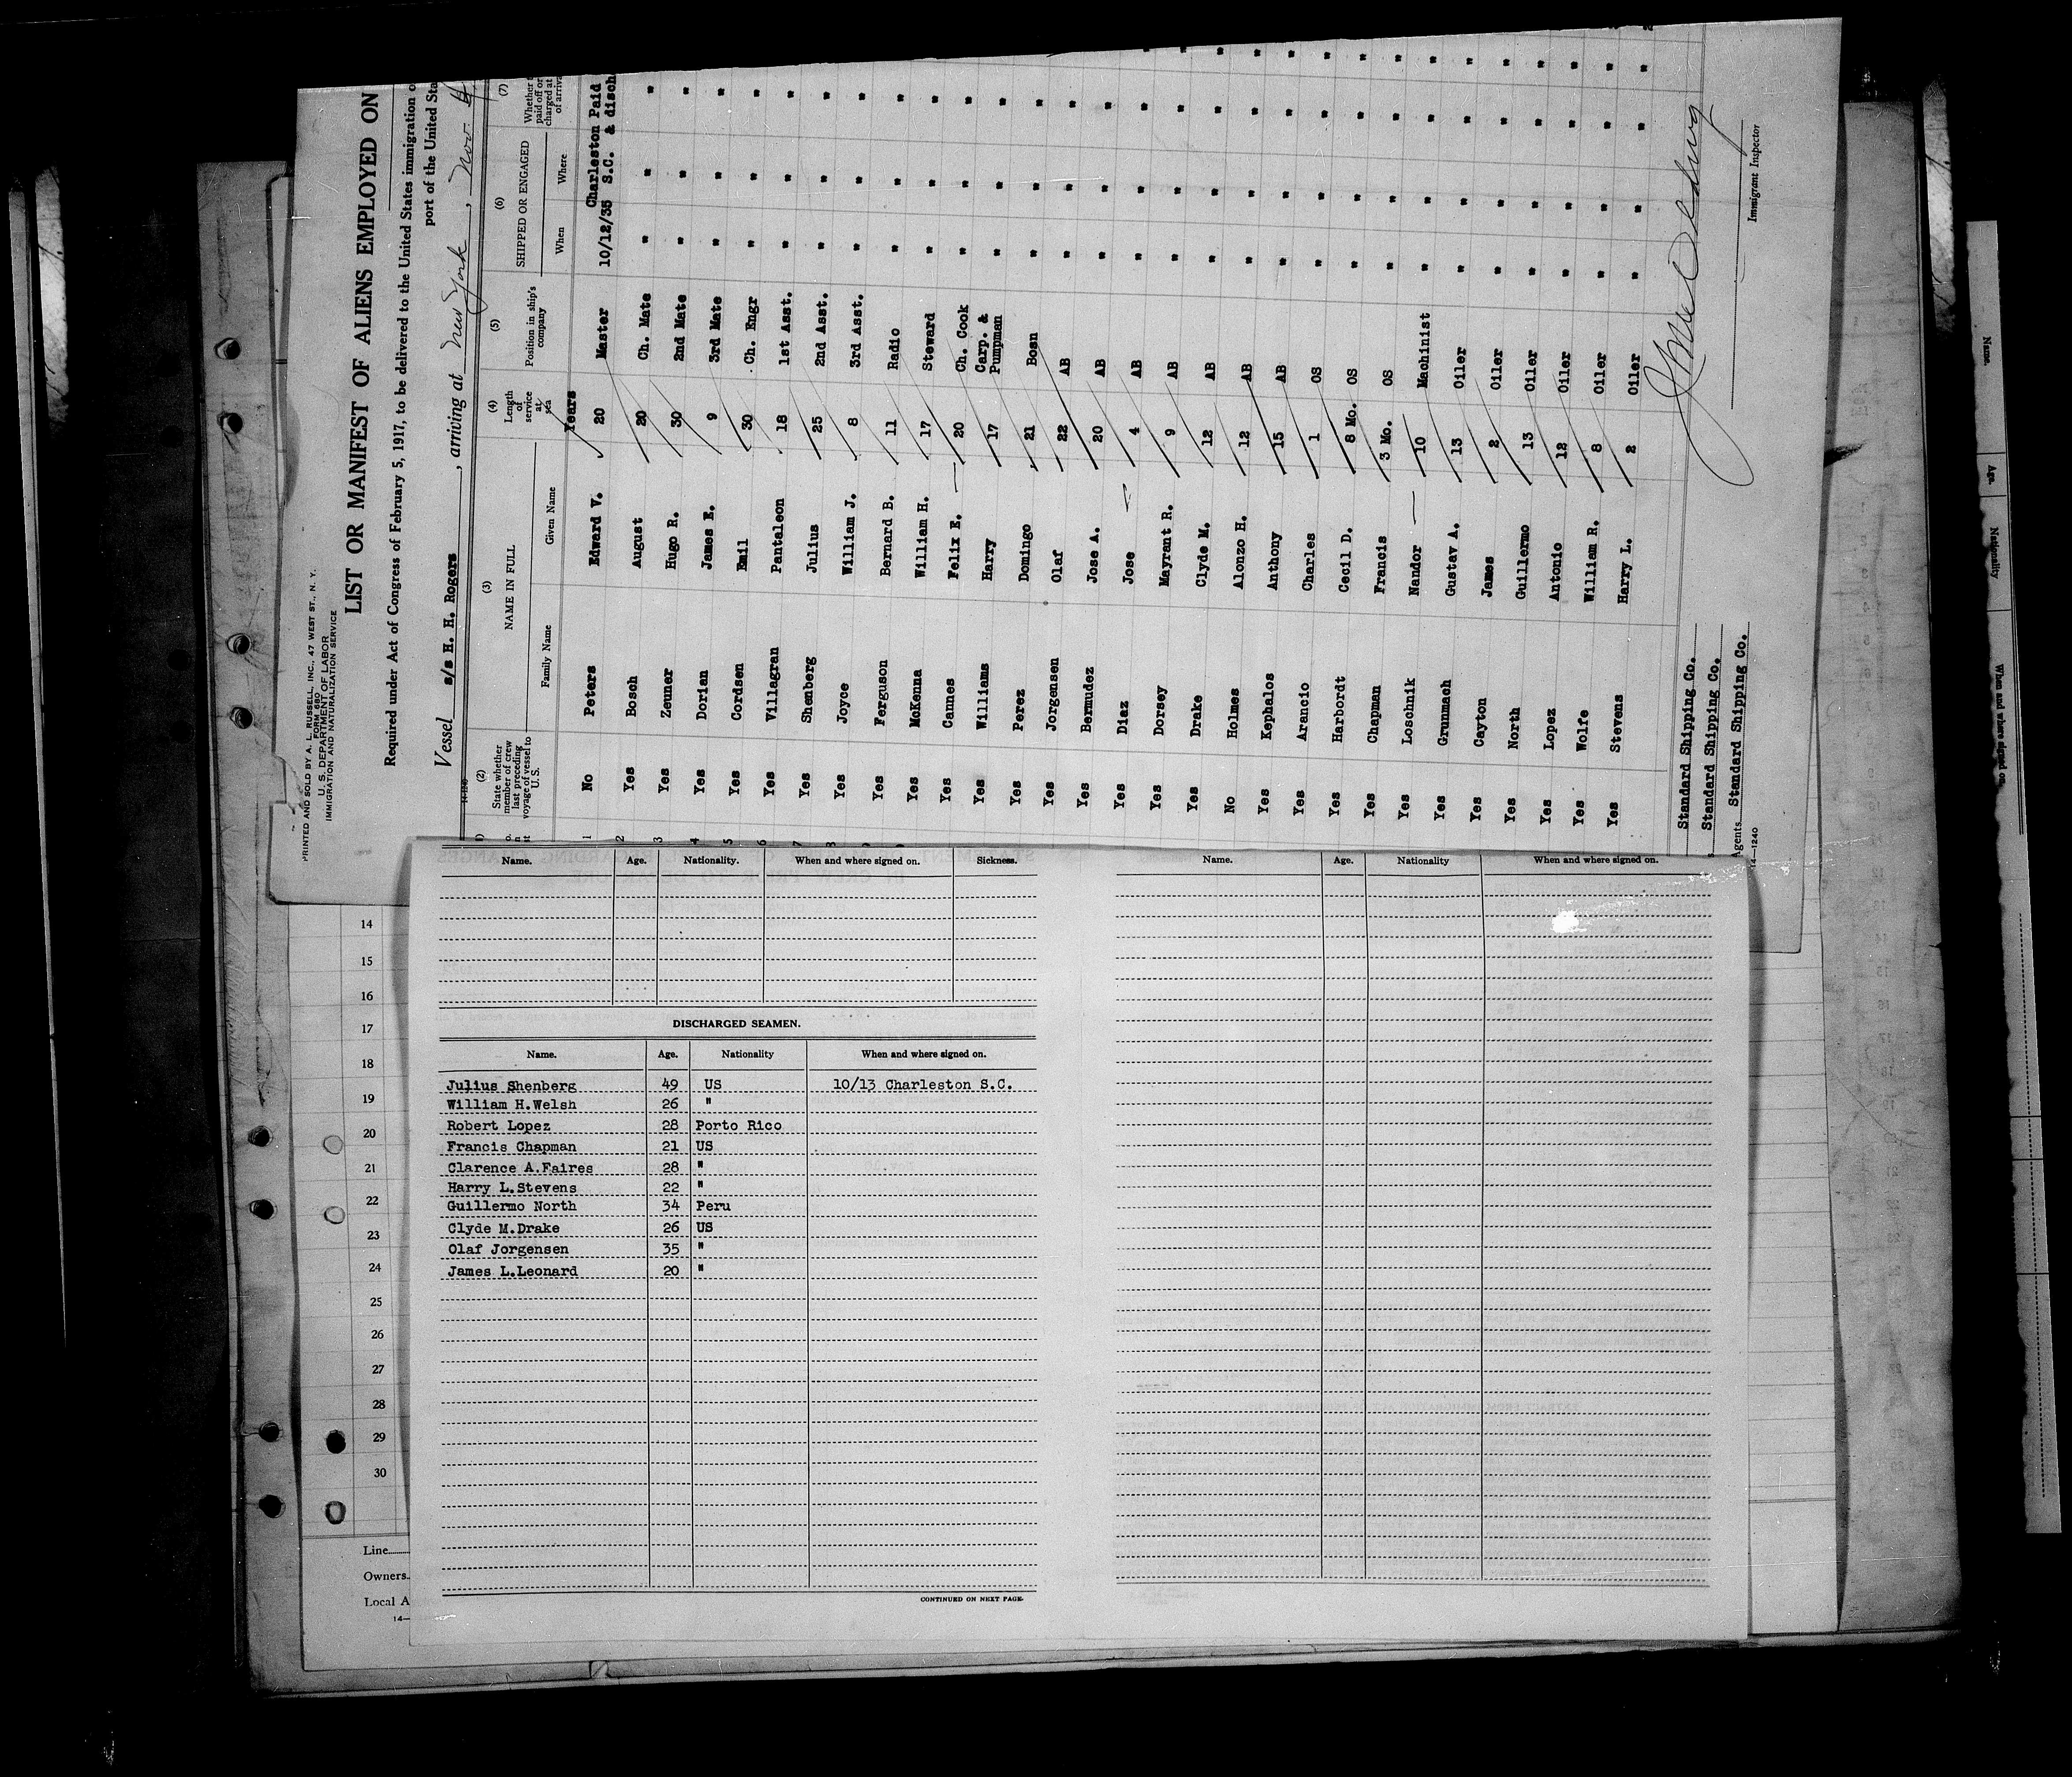 PRINTED AND SOLD BY A. L. RUSSELL, INC., 47 WEST ST., N. Y.
FORM 680
U. S. DEPARTMENT OF LABOR
IMMIGRATION AND NATURALIZATION SERVICE
LIST OR MANIFEST OF ALIENS EMPLOYED ON
Required under Act of Congress of February 5, 1917, to be delivered to the United States immigration
port of the United Sta
Vessel s/s H. H. Rogers, arriving at New York, Nov.
(2) (3) (4) (5) (6) (7)
State whether member of crew last preceding voyage of vessel to U.S.
NAME IN FULL
Family Name Given Name
Length of service at sea
Position in ship's company
SHIPPED OR ENGAGED
When Where
Whether
paid off or
charged at
of arriva
Years
1 No Peters Edward V. 20 Master 10/12/35 Charleston S.C. Paid & disch
2 Yes Bosch August 20 Ch. Mate " " "
3 Yes Zeuner Hugo R. 30 2nd Mate " " "
4 Yes Dorian James E. 9 3rd Mate " " "
5 Yes Cordsen Emil 30 Ch. Engr " " "
6 Yes Villagran Pantaleon 18 1st Asst. " " "
7 Yes Shenberg Julius 25 2nd Asst. " " "
Yes Joyce William J. 8 3rd Asst. " " "
Yes Ferguson Bernard B. 11 Radio " " "
Yes McKenna William H. 17 Steward " " "
Yes Cannes Felix E. 20 Ch. Cook " " "
Yes Williams Harry 17 Carp. & Pumpman " " "
Yes Perez Domingo 21 Bosn " " "
Yes Jorgensen Olaf 22 AB " " "
Yes Bermudez Jose A. 20 AB " " "
Yes Diaz Jose 4 AB " " "
Yes Dorsey Mayrant R. 9 AB " " "
Yes Drake Clyde M. 12 AB " " "
No Holmes Alonzo H. 12 AB " " "
Yes Kephalos Anthony 15 AB " " "
Yes Arancio Charles 1 OS " " "
Yes Harbordt Cecil D. 8 Mo. OS " " "
Yes Chapman Francis 3 Mo. OS " " "
Yes Loschnik Nandor 10 Machinist " " "
Yes Grunmach Gustav A. 13 Oiler " " "
Yes Cayton James 2 Oiler " " "
Yes North Guillermo 13 Oiler " " "
Yes Lopez Antonio 12 Oiler " " "
Yes Wolfe William R. 8 Oiler " " "
Yes Stevens Harry L. 2 Oiler " " "
Standard Shipping Co.
Standard Shipping Co.
Agents Standard Shipping Co.
14—1240
Immigrant Inspector
Name. Age. Nationality. When and where signed on. Sickness.
DISCHARGED SEAMEN.
Name. Age. Nationality When and where signed on.
Julius Shenberg 49 US 10/13 Charleston S.C.
William H.Welsh 26 "
Robert Lopez 28 Porto Rico
Francis Chapman 21 US
Clarence A.Faires 28 "
Harry L.Stevens 22 "
Guillermo North 34 Peru
Clyde M.Drake 26 US
Olaf Jorgensen 35 "
James L.Leonard 20 "
CONTINUED ON NEXT PAGE.
Name. Age. Nationality When and where signed on.
14
15
16
17
18
19
20
21
22
23
24
25
26
27
28
29
30
Line
Owners
Local A
14—
Name. Age. Nationality When and where signed on.